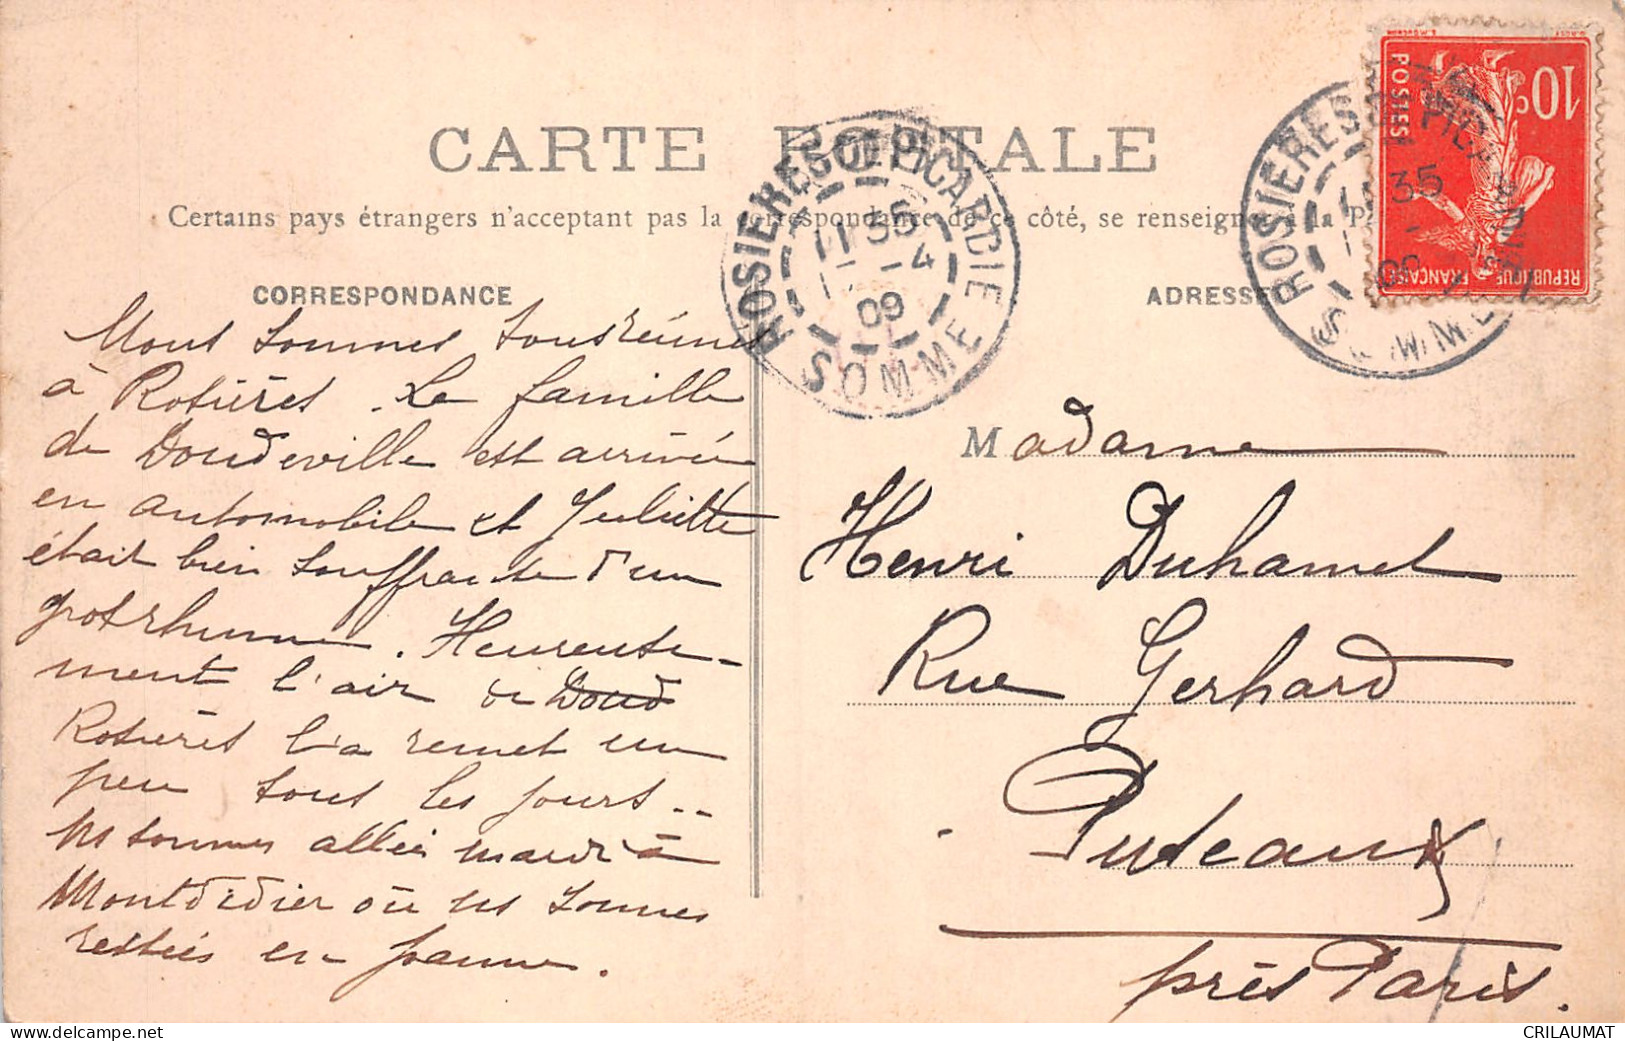 CARTE POSTALE
Certains pays étrangers n'acceptant pas la correspondance de ce côté, se renseigner à la P
CORRESPONDANCE
ADRESSE
Nous sommes tous réunis
à Rosières. La famille
de Doudeville est arrivée
en automobile et Juliette
était bien souffrante d'un
gros rhume. Heureuse-
ment l'air de Doud
Rosières l'a remet un
peu tous les jours..
Ns sommes allés mardi à
Montdidier où ns sommes
restés en panne.
Madame
Henri Duhamel
Rue Gerhard
Puteaux
près Paris.
ROSIERES DE PICARDIE
11 35
-4
09
SOMME
ROSIERES DE PICARDIE
35
SOMME
10c
POSTES
REPUBLIQUE FRANÇAISE
CRILAUMAT